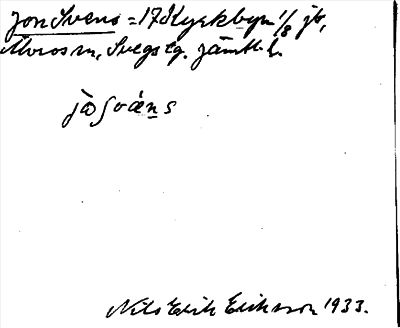 Jon Svens = 17 Kyrkbyn 1/8 jb,
Älvros sn, Svegs tg. Jämtl. l.
jo͡ sváns
Nils Erik Eriksson 1933.